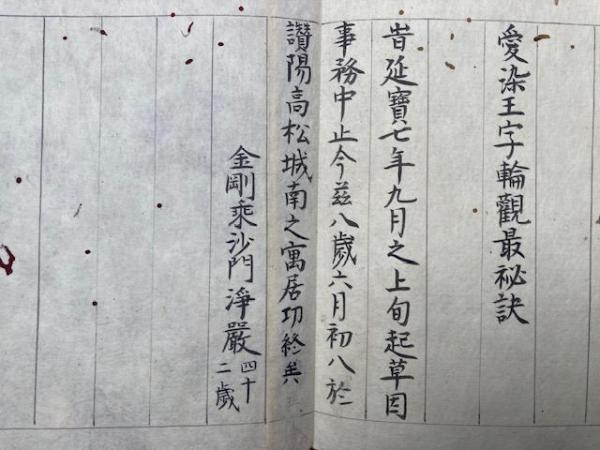 愛染王字輪觀最祕訣
旹延寶七年九月之上旬起草因
事務中止今茲八歲六月初八於
讚陽高松城南之寓居功終矣
金剛乘沙門淨嚴四十二歲